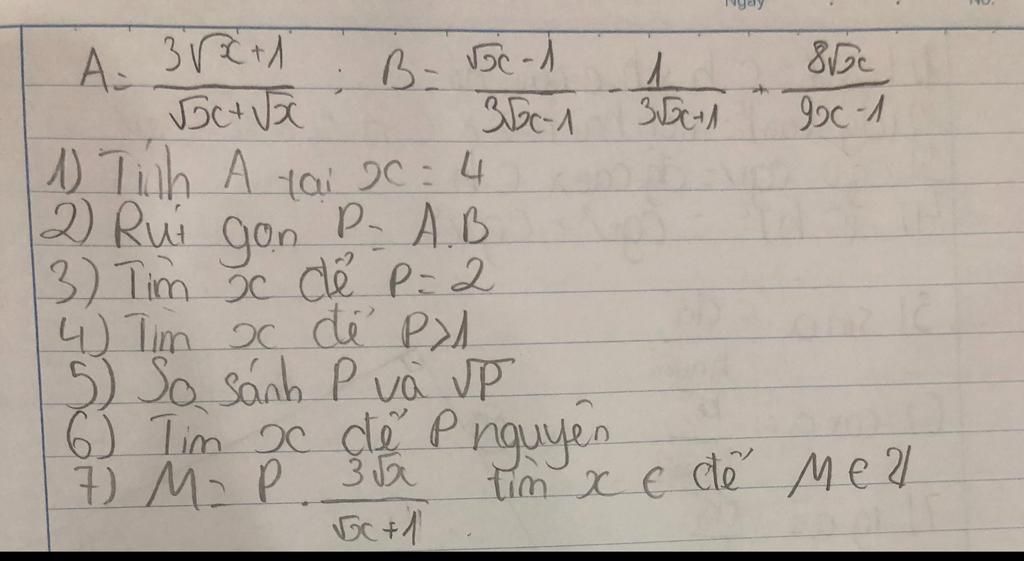 Ngày No.
A = \frac{3\sqrt{x}+1}{\sqrt{x}+\sqrt{x}} ; B = \frac{\sqrt{x}-1}{3\sqrt{x}-1} - \frac{1}{3\sqrt{x}+1} + \frac{8\sqrt{x}}{9x-1}
1) Tính A tại x = 4
2) Rút gọn P = A.B
3) Tìm x để P = 2
4) Tìm x để P > 1
5) So sánh P và √P
6) Tìm x để P nguyên
7) M = P . \frac{3\sqrt{x}}{\sqrt{x}+1} tìm x ∈ để M ∈ Z